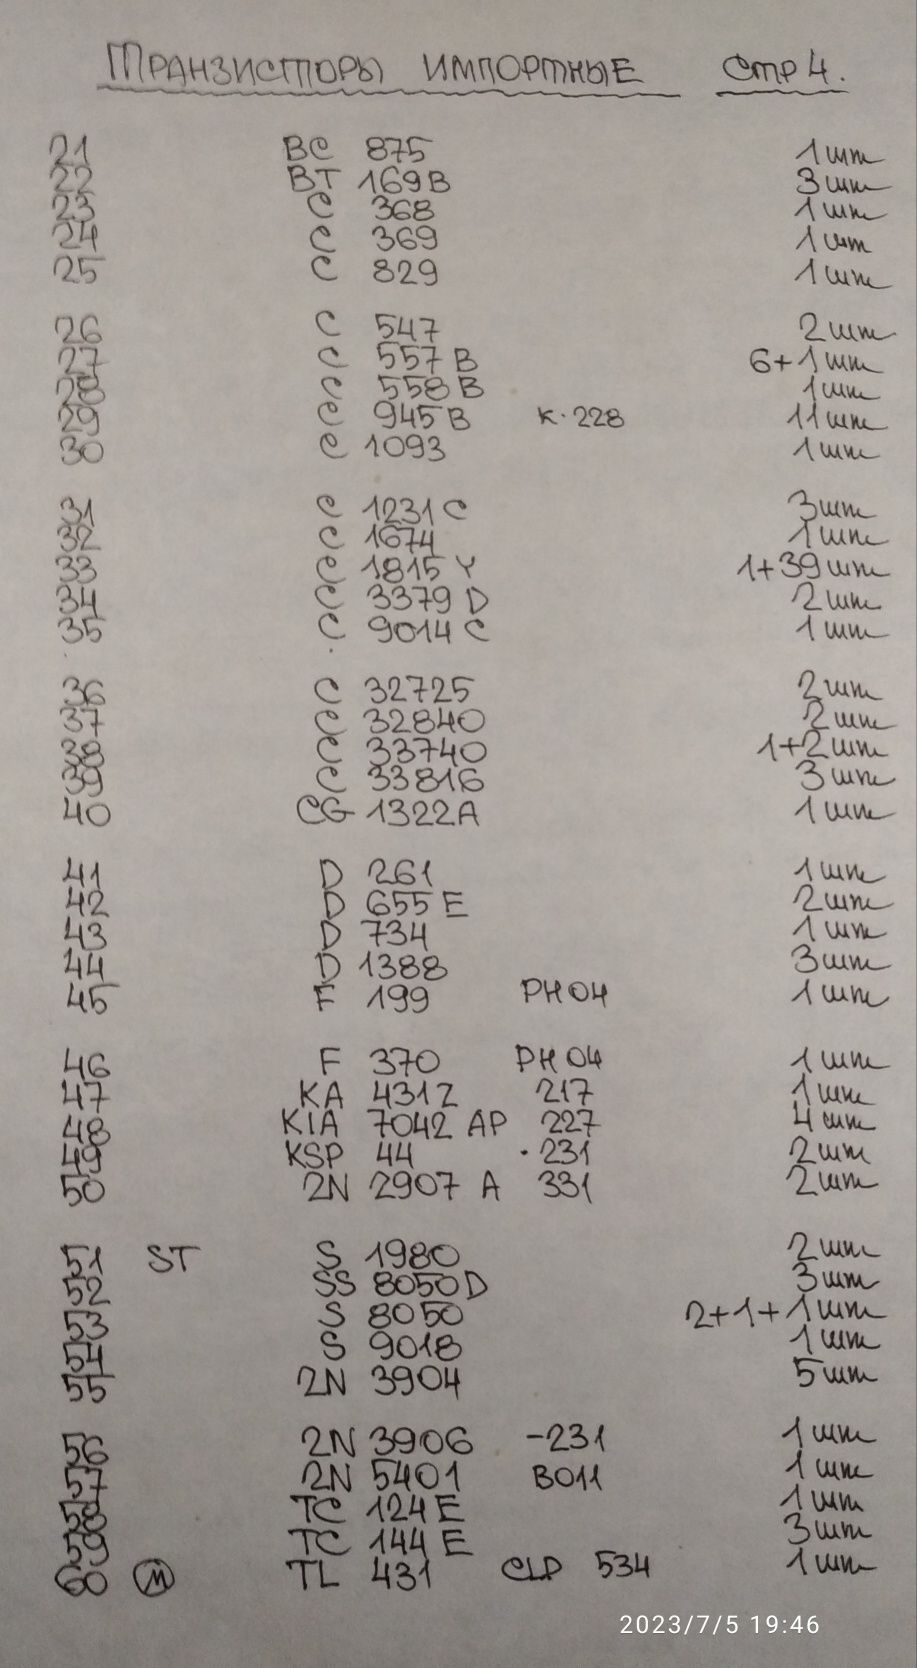 Транзисторы импортные стр 4.
21 BC 875 1 шт
22 BT 169B 3 шт
23 C 368 1 шт
24 C 369 1 шт
25 C 829 1 шт
26 C 547 2 шт
27 C 557 B 6+1 шт
28 C 558 B 1 шт
29 C 945 B K·228 11 шт
30 C 1093 1 шт
31 C 1231 C 3 шт
32 C 1674 1 шт
33 C 1815 Y 1+39 шт
34 C 3379 D 2 шт
35 C 9014 C 1 шт
36 C 32725 2 шт
37 C 32840 2 шт
38 C 33740 1+2 шт
39 C 33816 3 шт
40 CG 1322A 1 шт
41 D 261 1 шт
42 D 655 E 2 шт
43 D 734 1 шт
44 D 1388 3 шт
45 F 199 PH 04 1 шт
46 F 370 PH 04 1 шт
47 KA 431Z 217 1 шт
48 KIA 7042 AP 227 4 шт
49 KSP 44 ·231 2 шт
50 2N 2907 A 331 2 шт
51 ST S 1980 2 шт
52 SS 8050 D 3 шт
53 S 8050 2+1+1 шт
54 S 9018 1 шт
55 2N 3904 5 шт
56 2N 3906 -231 1 шт
57 2N 5401 B011 1 шт
58 TC 124 E 1 шт
59 TC 144 E 3 шт
60 M TL 431 CLP 534 1 шт
2023/7/5 19:46